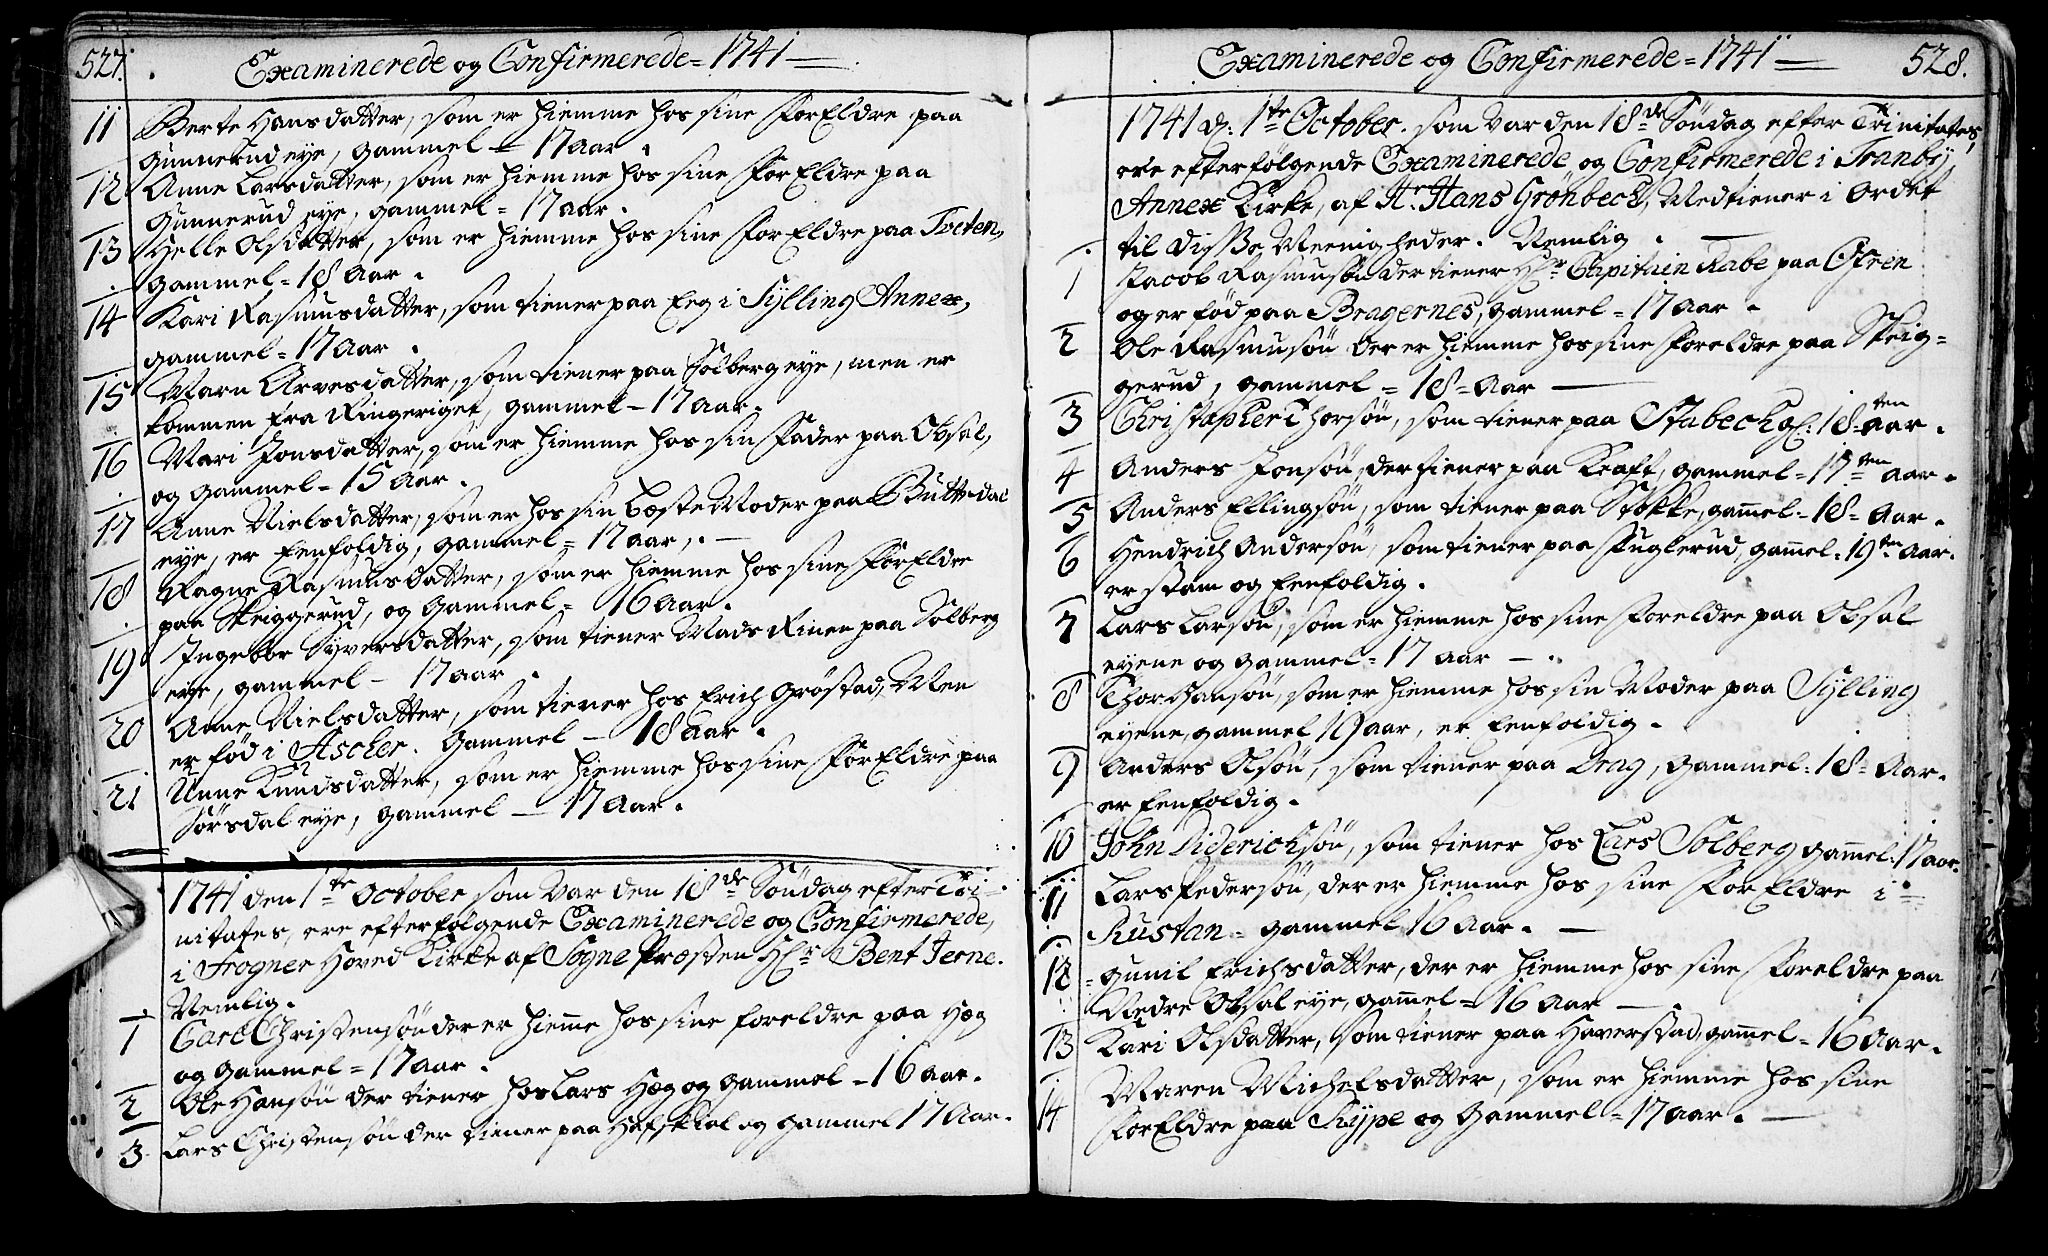 527.
Examinerede og Confirmerede = 1741
11 Berte Hansdatter, som er hiemme hos sine ForEldre paa
Gunnerud eye, gammel - 17 aar.
12 Anne Larsdatter, som er hiemme hos sine ForEldre paa
Gunnerud eye, gammel = 17 aar.
13 Helle Olsdatter, som er hiemme hos sine ForEldre paa Tveten,
gammel = 18 Aar.
14 Kari Rasmusdatter, som tiener paa Eeg i Sylling Annex,
gammel = 17 Aar.
15 Marn Arvesdatter, som tiener paa Solberg eye, men er
kommen fra Ringeriget, gammel - 17 aar.
16 Mari Jonsdatter, som er hiemme hos sin Fader paa Obsal,
og gammel - 15 Aar.
17 Anne Nielsdatter, som er hos sin Beste Moder paa Buttedal
eye, er Eenfoldig, gammel = 17 aar.
18 Ragne Rasmusdatter, som er hiemme hos sine ForEldre
paa Skiggerud, og gammel = 16 Aar.
19 Ingebor Syversdatter, som tiener Mads Rinen paa Solberg
eye, gammel - 17 aar.
20 Anne Nielsdatter, som tiener hos Erich Grøstad, Men
er fød i Ascher. gammel - 18 aar.
21 Anne Knudsdatter, som er hiemme hos sine ForEldre paa
Sørsdal eye, gammel - 17 Aar.
1741 den 1te October som var den 18de Søndag efter Tri-
nitates, ere efterfølgende Examinerede og Confirmerede,
i Frogner Hoved Kirke af Sogne Præsten Hr Bent Ierne.
Nemlig.
1 Carl Christensøn der er hieme hos sine foreldre paa Hæg
og gammel = 17 aar.
2 Ole Hansøn der tiener hos Lars Hæg og gammel - 16 aar.
3 Lars Christensøn der tiener paa og gammel 17 Aar.
Examinerede og Confirmerede = 1741
528.
1741 d: 1te October. som var den 18de Søndag efter Trinitates,
ere efterfølgende Examinerede og Confirmerede i Tranby
Annex Kirke, af Hr Hans Grønbeck, Medtiener i Ordet
til disse Meenigheder. Nemlig.
1 Jacob Rasmussøn der tiener Hr Capitain Rabe paa Gren
og er fød paa Bragernes, gammel = 17 aar.
2 Ole Rasmusøn der er hiemme hos sine Foreldre paa Skig=
gerud, gammel = 18 = Aar
3 Christopher Thorsøn, som tiener paa Stabech gl: 18ten aar.
4 Anders Jonsøn, der tiener paa Kraft, gammel = 17ten aar.
5 Anders Ellingsøn, som tiener paa Stokke, gamel = 18 = Aar.
6 Hendrich Andersøn, som tiener paa Fuglerud, gamel = 19ten Aar.
er stam og Eenfoldig.
7 Lars Larsøn, som er hiemme hos sine Foreldre paa Obsal
eyene og gammel = 17 aar
8 Thor Hansøn, som er hiemme hos sin Moder paa Sylling
eyene, gammel 19 aar, er Eenfoldig.
9 Anders Olsøn, som tiener paa Drag, gammel = 18 = Aar.
er Eenfoldig.
10 John Diderichsøn, som tiener hos Lars Solberg gamel: 17 aar.
11 Lars Pedersøn, der er hiemme hos sine ForEldre i
Rustan = gammel 16 Aar.
12 Gunil Erichsdatter, der er hiemme hos sine Foreldre paa
Nedre Obsal eye, gamel = 16 Aar
13 Kari Olsdatter, som tiener paa Haverstad, gamel = 16 Aar.
14 Maren Michelsdatter, som er hiemme hos sine
ForEldre paa Kyppe og gammel = 17 aar.